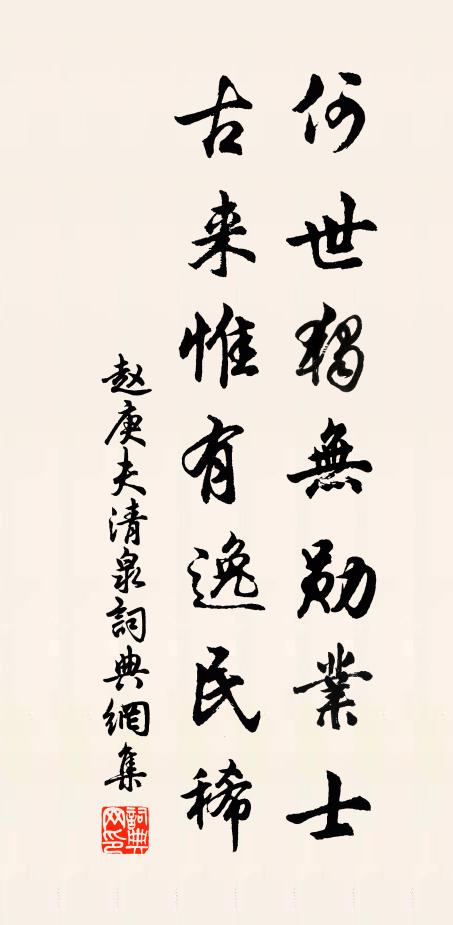 何世獨無勛業士
古来惟有逸民稀
赵庚夫清泉詞典網集
詞典網印